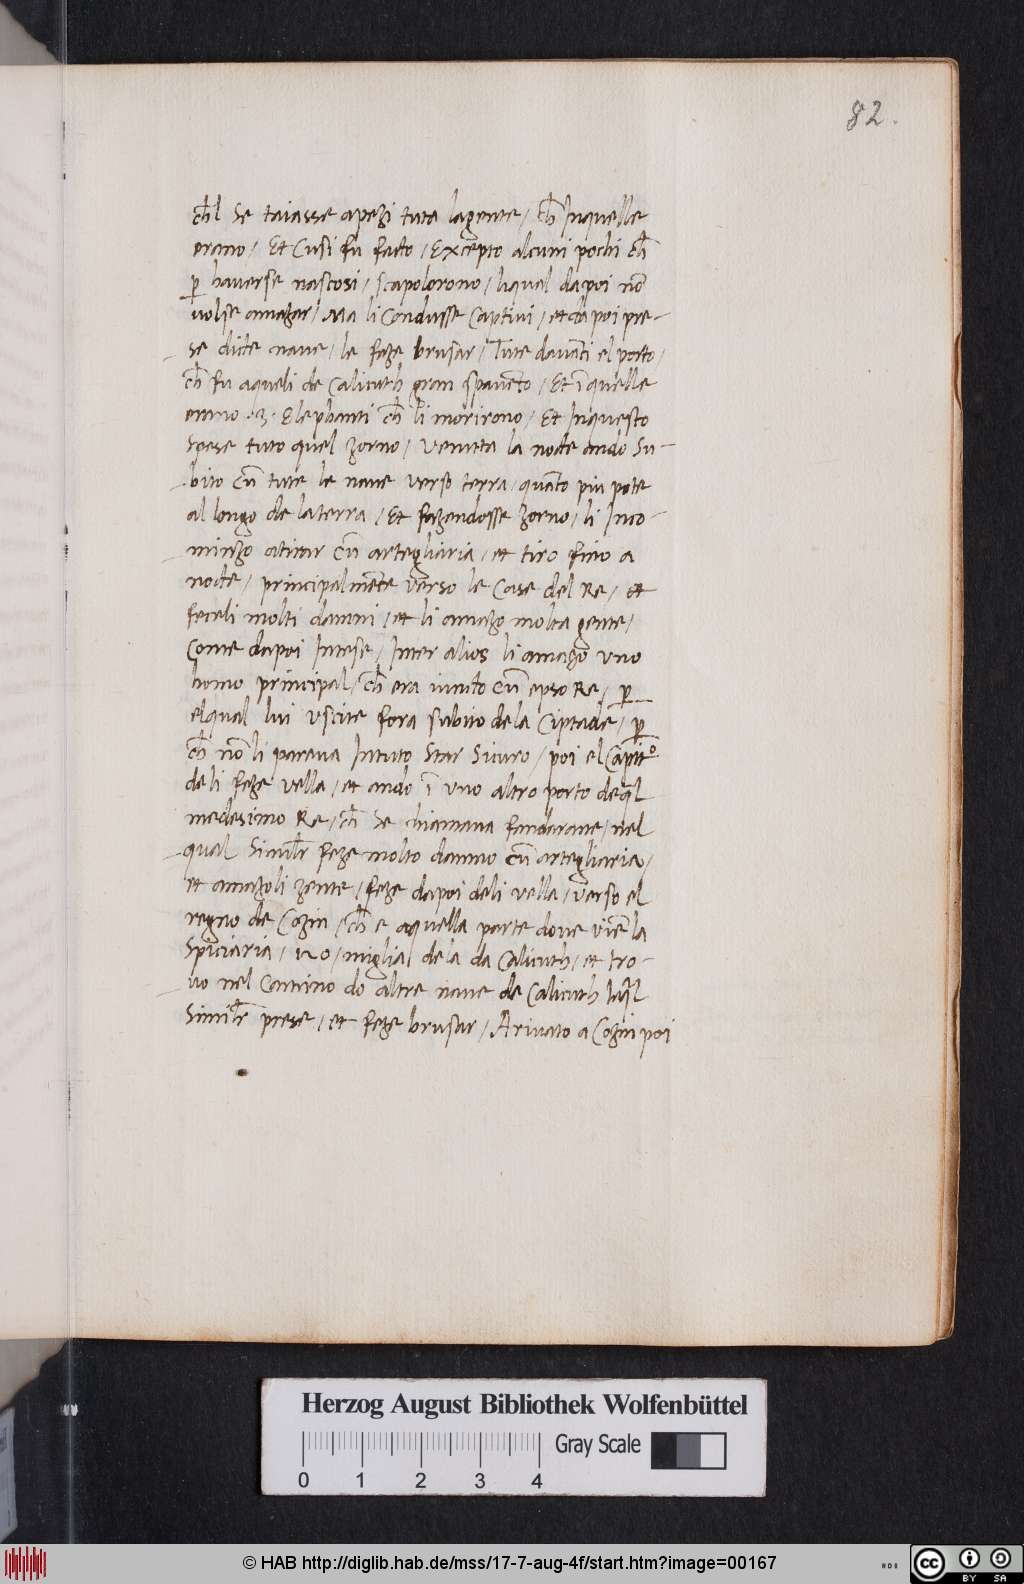 82.
ch̄l Se taiasse apezi tuta lagente / ch̄ Inquelle
erano / Et Cusi fu facto / Excepto alcuni pochi ch̄
p̱ hauerse nascosi / scapolorono / liqual dapoi nō
uolse amazar / Ma li Condusse Captiui / et dapoi pre-
se dicte naue / le feze brusar / Tute dauāti el porto /
ch̄ fu aqueli de Calicuth gran spauēto / Et ī quelle
erano .3. Elephanti ch̄ li morirono / Et Inquesto
Spese tuto quel zorno / Venuta la nocte ando Su-
bito cū tute le naue verso terra / quāto piu pote
al longo de laterra / Et fazendosse zorno / li Inco-
minzo atirar cū artegliaria / et tiro fino a
nocte / principalmēte verso le Case del Re / et
feceli molti danni / et li amazo molta gente /
Come dapoi Intese / Inter alios li amazo vno
homo principal / ch̄ era iunto cū epso Re / p̱
elqual lui vscite fora subito dela Ciptade / p̱
ch̄ nō li pareua Intuto Star Sicuro / poi el Capit̄o
deli feze vella / et ando ī vno altro porto deq̄l
medesimo Re / ch̄ Se chiamaua fandarane / nel
qual Simil̄r feze molto danno cū artegliaria /
et amazoli zente / feze dapoi deli vella / verso el
regno de Cozin / ch̄ e aquella parte doue viē la
Spiciaria / 120 / miglia dela da Calicuth / et tro-
uo nel Camino do altre naue de Calicuth leq̄l
Simil̄r prese / et feze brusar / Ariuato a Cozin poi
Herzog August Bibliothek Wolfenbüttel
0 1 2 3 4
Gray Scale
© HAB http://diglib.hab.de/mss/17-7-aug-4f/start.htm?image=00167
HAB
cc
BY SA